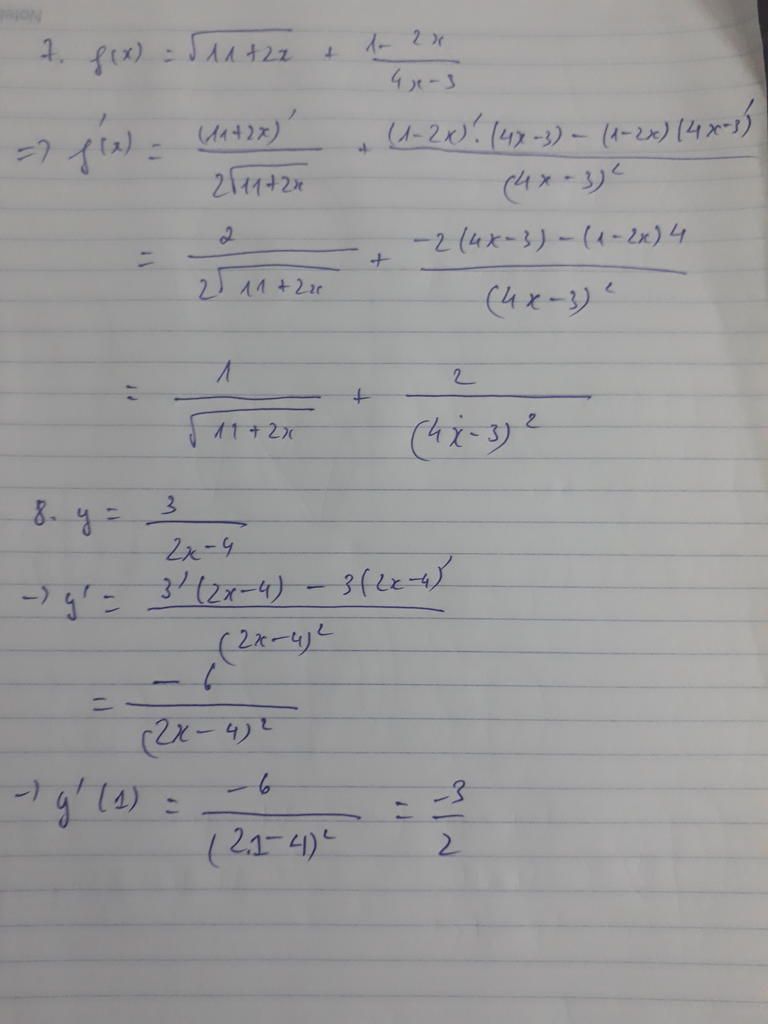 7. f(x) = √(11+2x) + (1-2x)/(4x-3)
=> f'(x) = (11+2x)'/(2√(11+2x)) + ((1-2x)'.(4x-3) - (1-2x)(4x-3)')/(4x-3)²
= 2/(2√(11+2x)) + (-2(4x-3) - (1-2x)4)/(4x-3)²
= 1/√(11+2x) + 2/(4x-3)²
8. y = 3/(2x-4)
-> y' = (3'(2x-4) - 3(2x-4)')/(2x-4)²
= -6/(2x-4)²
-> y'(1) = -6/(2.1-4)² = -3/2